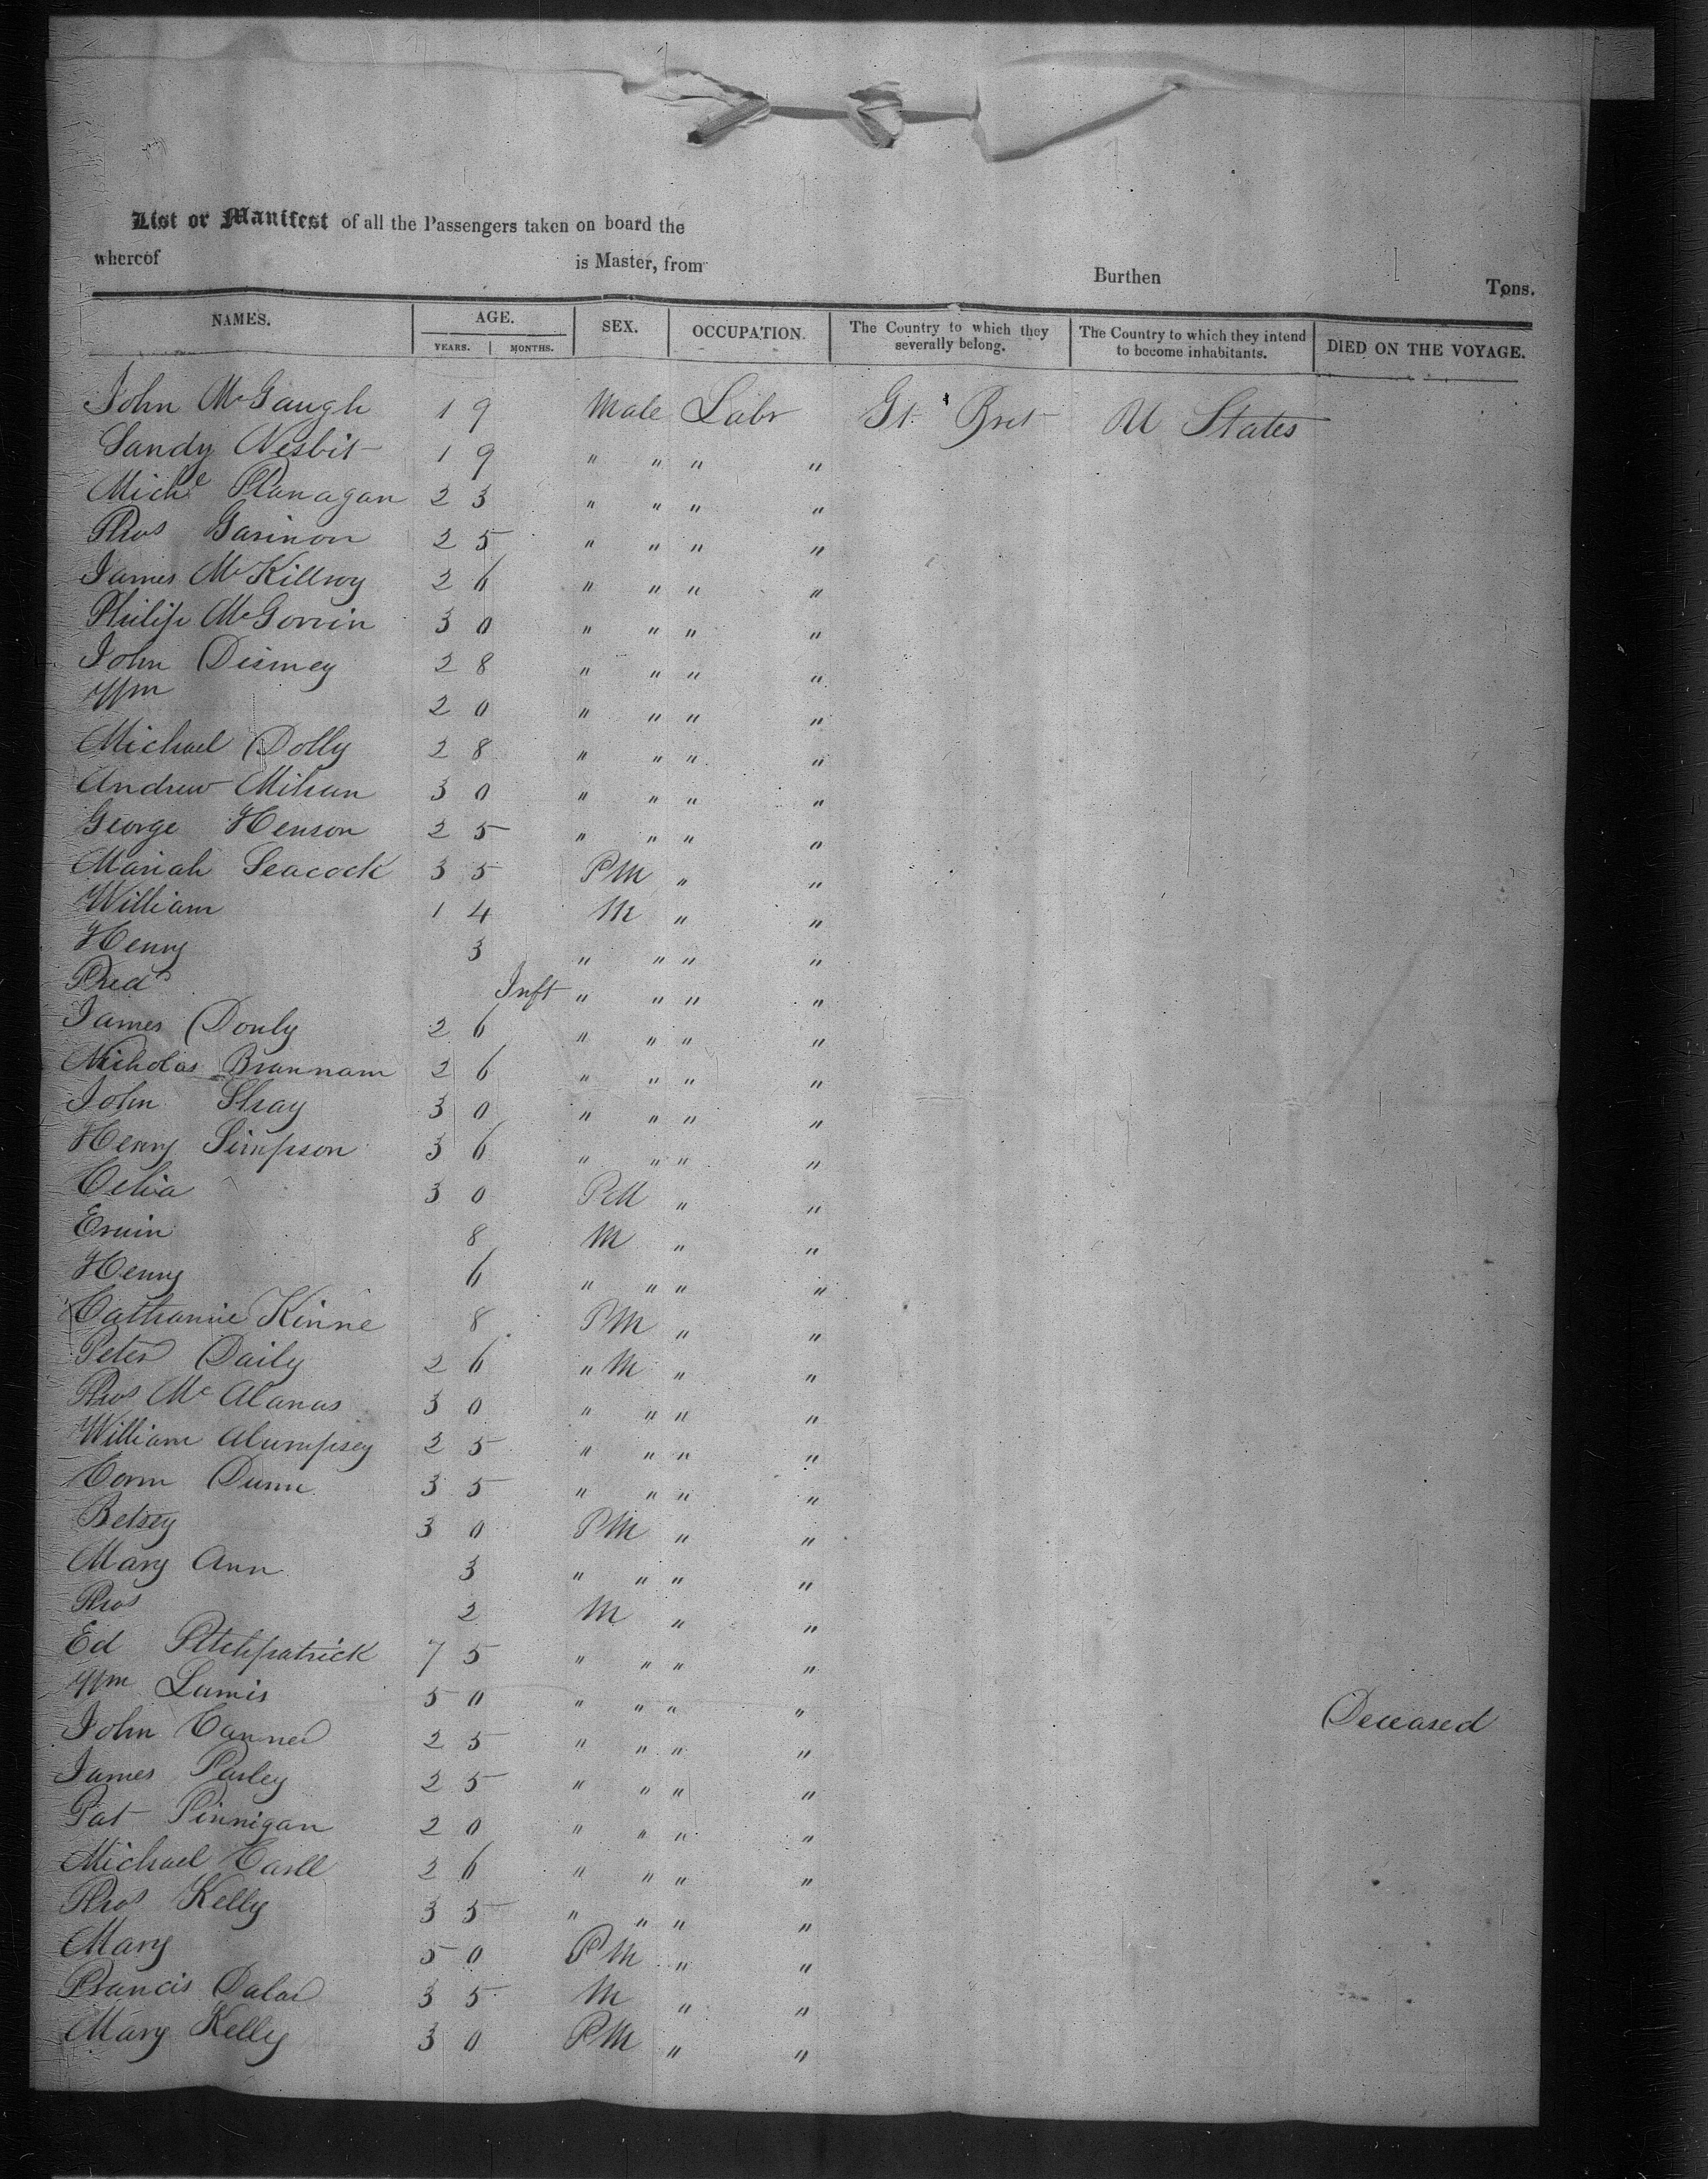 List or Manifest of all the Passengers taken on board the
whereof is Master, from Burthen Tons.
NAMES. AGE. SEX. OCCUPATION. The Country to which they severally belong. The Country to which they intend to become inhabitants. DIED ON THE VOYAGE.
YEARS. MONTHS.
John McGaugh 19 Male Labr Gt. Brit U States
Sandy Nesbit 19 " " " "
Miche Flanagan 23 " " " "
Thos Garinon 25 " " " "
James McKillroy 26 " " " "
Philip McGorrin 30 " " " "
John Dismey 28 " " " "
Wm 20 " " " "
Michael Dolly 28 " " " "
Andrew Mihan 30 " " " "
George Henson 25 " " " "
Mariah Seacock 35 FM " "
William 14 M " "
Henry 3 " " " "
Fred Inft " " " "
James Donly 26 " " " "
Nicholas Brannam 26 " " " "
John Shay 30 " " " "
Henry Simpson 36 " " " "
Celia 30 FM " "
Erwin 8 M " "
Henry 6 " " " "
Catharine Kinne 8 FM " "
Peter Daily 26 " M " "
Thos McAlanas 30 " " " "
William Alumpsey 25 " " " "
Corn Dunn 35 " " " "
Betsey 30 FM " "
Mary Ann 3 " " " "
Thos 2 M " "
Ed Fitchpatrick 75 " " " "
Wm Lumis 50 " " " " Deceased
John Canner 25 " " " "
James Farley 25 " " " "
Pat Finnigan 20 " " " "
Michael Carll 26 " " " "
Thos Kelly 35 " " " "
Mary 50 FM " "
Francis Dalar 35 M " "
Mary Kelly 30 FM " "